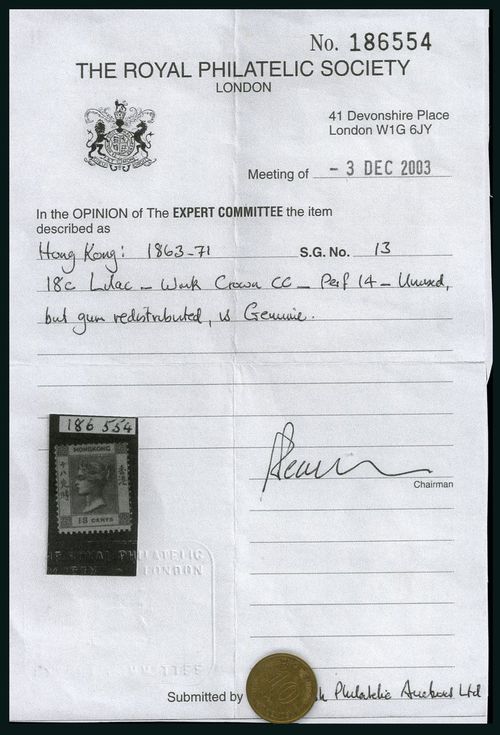 No. 186554
THE ROYAL PHILATELIC SOCIETY
LONDON
41 Devonshire Place
London W1G 6JY
Meeting of - 3 DEC 2003
In the OPINION of The EXPERT COMMITTEE the item
described as
Hong Kong: 1863-71 S.G. No. 13
18c Lilac - Wmk Crown CC - Perf 14 - Unused,
but gum redistributed, is Genuine.
186 554
HONG KONG
18 CENTS
Chairman
THE ROYAL PHILATELIC
LONDON
10
Submitted by Philatelic Auctions Ltd